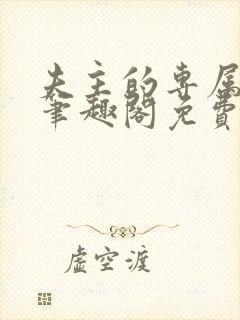 夫主的专属
笔趣阁免费
虚空渡